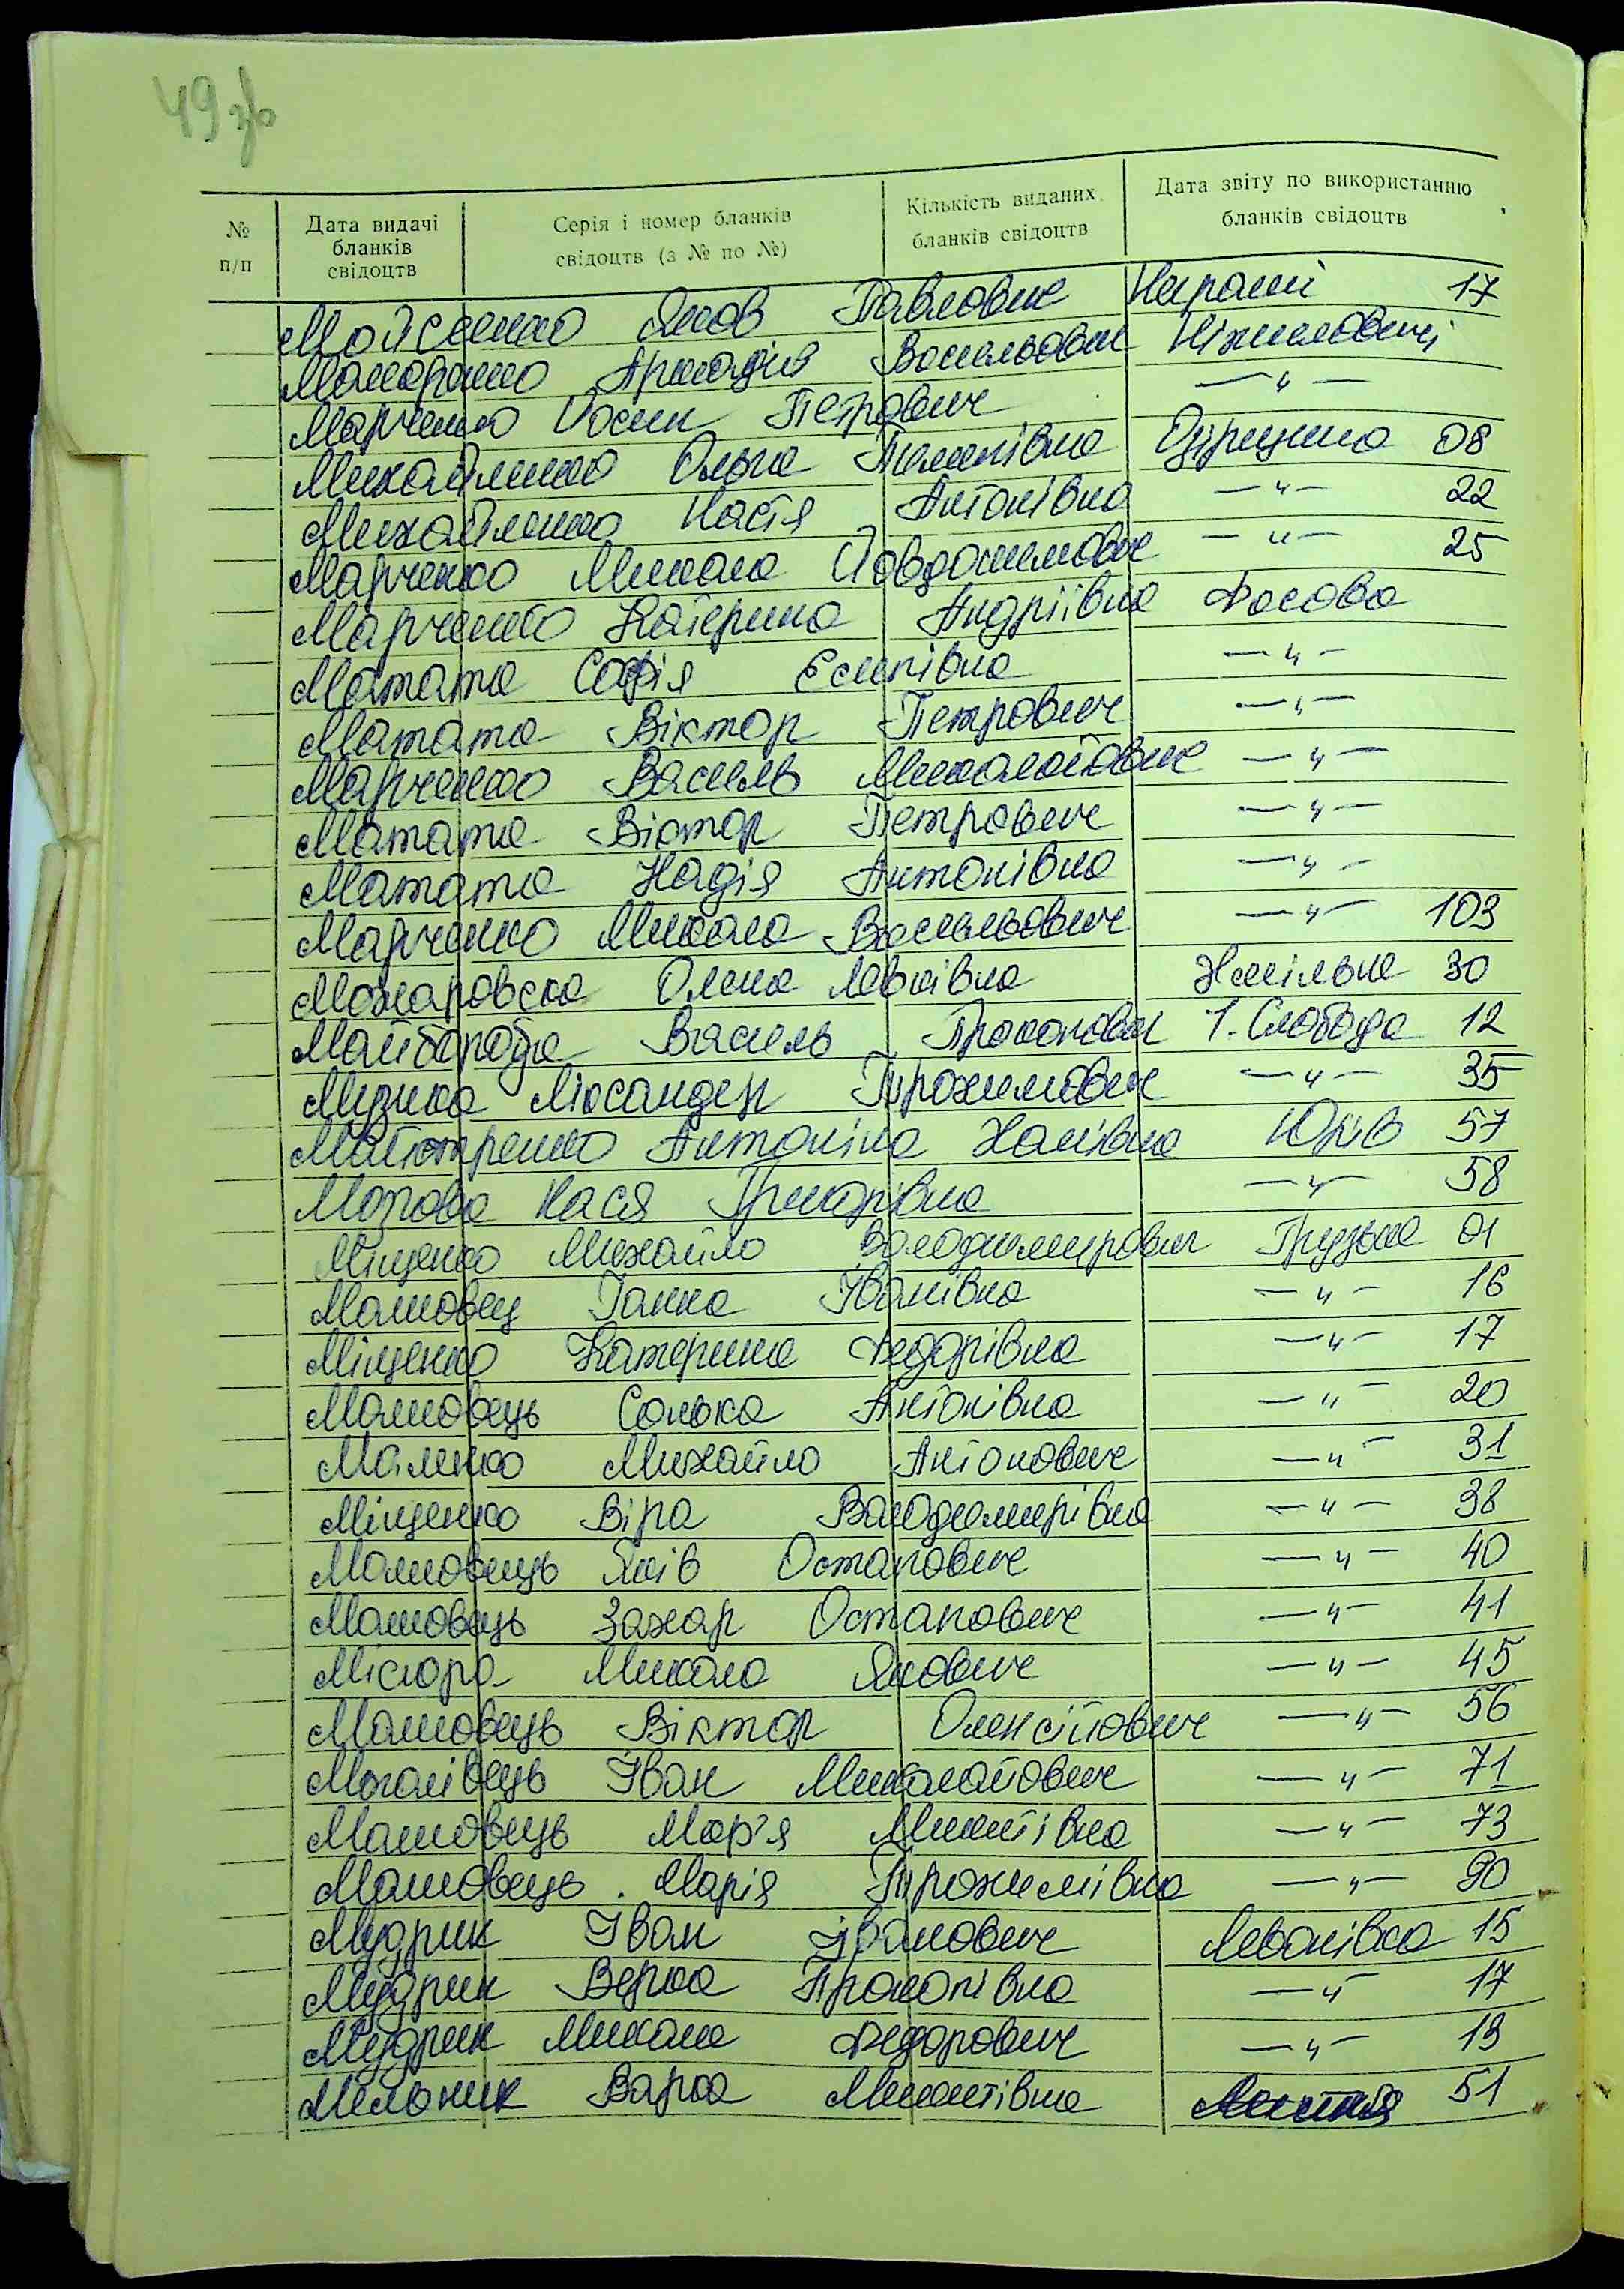 49 зв
№ п/п
Дата видачі бланків свідоцтв
Серія і номер бланків свідоцтв (з № по №)
Кількість виданих бланків свідоцтв
Дата звіту по використанню бланків свідоцтв
Мойсеєнко Яков Павлович 17
Макаренко Аркадій Васильович Ніжиловичі
Марченко Йосип Петрович —"—
Михайленко Ольга Пилипівна 08
Михайленко Настя Антонівна —"— 22
Марченко Микола Йовдокимович —"— 25
Марченко Катерина Андріївна Фасова
Матата Софія Єсипівна —"—
Матата Віктор Петрович —"—
Марченко Василь Миколайович —"—
Матата Віктор Петрович —"—
Матата Надія Антонівна —"—
Марченко Микола Васильович —"— 103
Можаровска Олена Левківна 30
Майборода Василь Прокопович Т. Слобода 12
Музика Лександер Трохимович —"— 35
Антоніна Юрів 57
Мозгова Нася Григорівна —"— 58
Міщенко Михайло Володимирович Грузьке 01
Маковец Ганна Іванівна —"— 16
Міщенко Катерина Федорівна —"— 17
Маковець Солька Антонівна —"— 20
Маленко Михайло Антонович —"— 31
Міщенко Віра Володимирівна —"— 38
Маковець Яків Остапович —"— 40
Маковець Захар Остапович —"— 41
Місюра Микола Якович —"— 45
Маковець Віктор Олексійович —"— 56
Іван Миколайович —"— 71
Маковець Мар'я Микитівна —"— 73
Маковець Марія Трохимівна —"— 90
Мудрик Іван Іванович Леванівка 15
Мудрик Верка Прокопівна —"— 17
Мудрик Микола Федорович —"— 19
Мельник Варка Микитівна 51